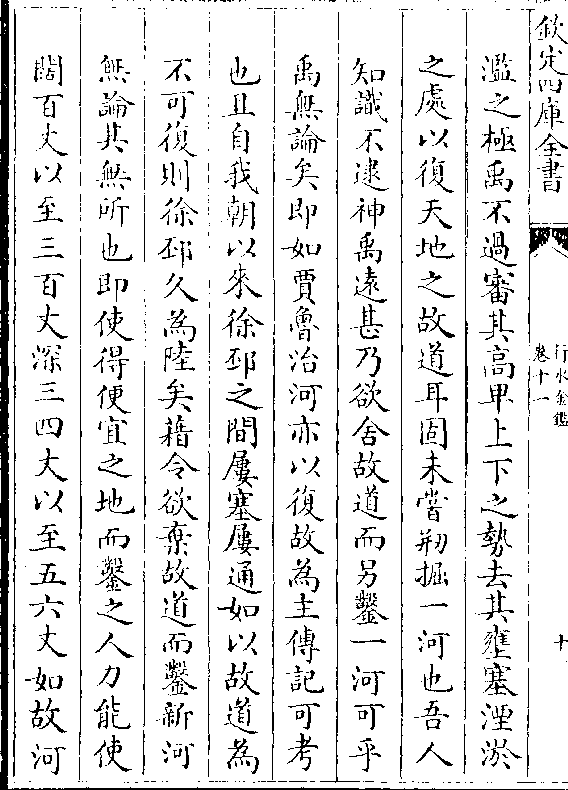 欽定四庫全書
行水金鑑
卷十一
十
濫之極禹不過審其高卑上下之勢去其壅塞湮淤
之處以復天地之故道耳固未嘗剏掘一河也吾人
知識不逮神禹遠甚乃欲舍故道而另鑿一河可乎
禹無論矣即如賈魯治河亦以復故為主傳記可考
也且自我朝以來徐邳之間屢塞屢通如以故道為
不可復則徐邳久為陸矣藉令欲棄故道而鑿新河
無論其無所也即使得便宜之地而鑿之人力能使
闊百丈以至三百丈深三四丈以至五六丈如故河